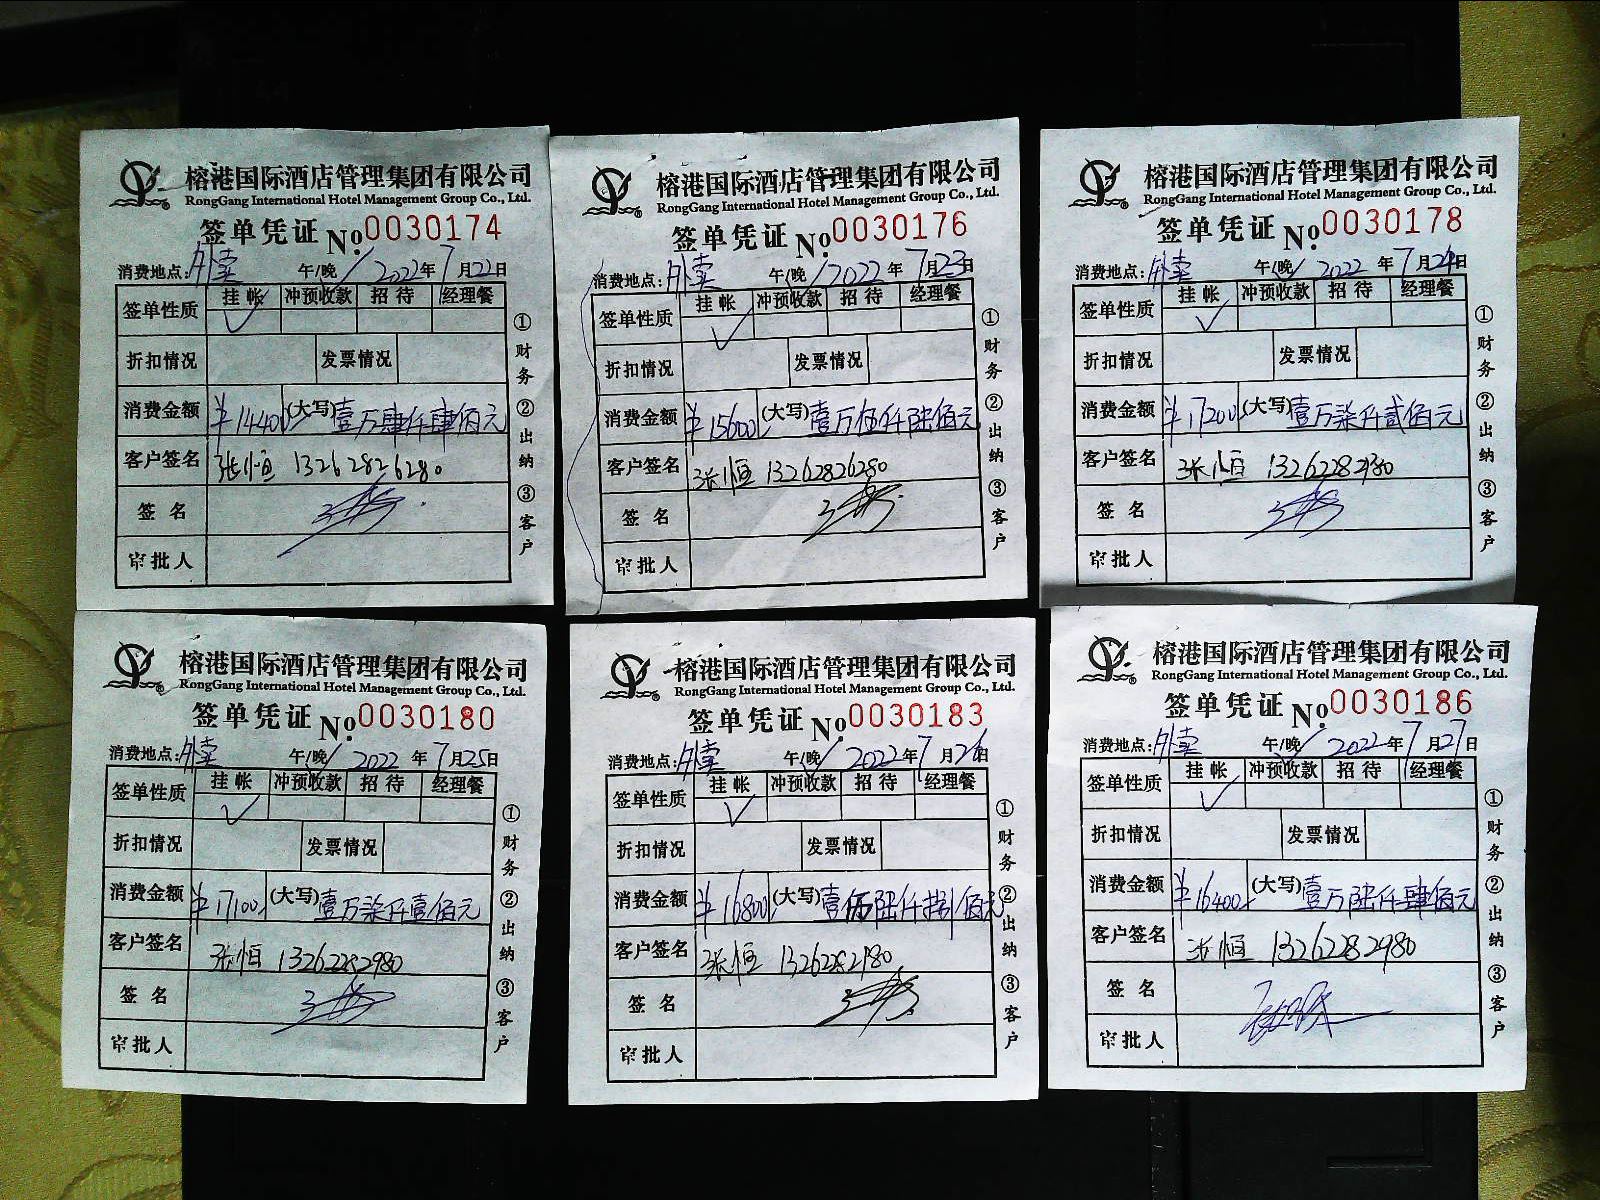 榕港国际酒店管理集团有限公司
RongGang International Hotel Management Group Co., Ltd.
签单凭证 No. 0030174
消费地点: 外卖 午/晚 2022年7月22日
签单性质 挂帐 冲预收款 招待 经理餐
✓
折扣情况 发票情况
消费金额 ¥14400 (大写) 壹万肆仟肆佰元
客户签名 张恒 13262826280
签名
审批人
①财务 ②出纳 ③客户
榕港国际酒店管理集团有限公司
RongGang International Hotel Management Group Co., Ltd.
签单凭证 No. 0030176
消费地点: 外卖 午/晚 2022年7月23日
签单性质 挂帐 冲预收款 招待 经理餐
✓
折扣情况 发票情况
消费金额 ¥15600 (大写) 壹万伍仟陆佰元
客户签名 张恒 13262826280
签名
审批人
①财务 ②出纳 ③客户
榕港国际酒店管理集团有限公司
RongGang International Hotel Management Group Co., Ltd.
签单凭证 No. 0030178
消费地点: 外卖 午/晚 2022年7月24日
签单性质 挂帐 冲预收款 招待 经理餐
✓
折扣情况 发票情况
消费金额 ¥17200 (大写) 壹万柒仟贰佰元
客户签名 张恒 13262282980
签名
审批人
①财务 ②出纳 ③客户
榕港国际酒店管理集团有限公司
RongGang International Hotel Management Group Co., Ltd.
签单凭证 No. 0030180
消费地点: 外卖 午/晚 2022年7月25日
签单性质 挂帐 冲预收款 招待 经理餐
✓
折扣情况 发票情况
消费金额 ¥17100 (大写) 壹万柒仟壹佰元
客户签名 张恒 13262282980
签名
审批人
①财务 ②出纳 ③客户
榕港国际酒店管理集团有限公司
RongGang International Hotel Management Group Co., Ltd.
签单凭证 No. 0030183
消费地点: 外卖 午/晚 2022年7月26日
签单性质 挂帐 冲预收款 招待 经理餐
✓
折扣情况 发票情况
消费金额 ¥16800 (大写) 壹万陆仟捌佰元
客户签名 张恒 13262282980
签名
审批人
①财务 ②出纳 ③客户
榕港国际酒店管理集团有限公司
RongGang International Hotel Management Group Co., Ltd.
签单凭证 No. 0030186
消费地点: 外卖 午/晚 2022年7月27日
签单性质 挂帐 冲预收款 招待 经理餐
✓
折扣情况 发票情况
消费金额 ¥16400 (大写) 壹万陆仟肆佰元
客户签名 张恒 13262282980
签名
审批人
①财务 ②出纳 ③客户